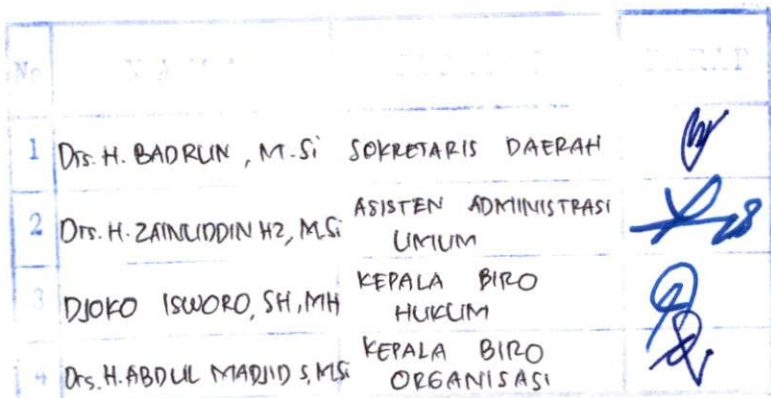 No NAMA PARAP
1 Drs. H. BADRUN, M.Si SEKRETARIS DAERAH
2 Drs. H. ZAINUDDIN HZ, M.Si ASISTEN ADMINISTRASI
UMUM
3 DJOKO ISWORO, SH, MH KEPALA BIRO
HUKUM
4 Drs. H. ABDUL MADJID S, MSi KEPALA BIRO
ORGANISASI